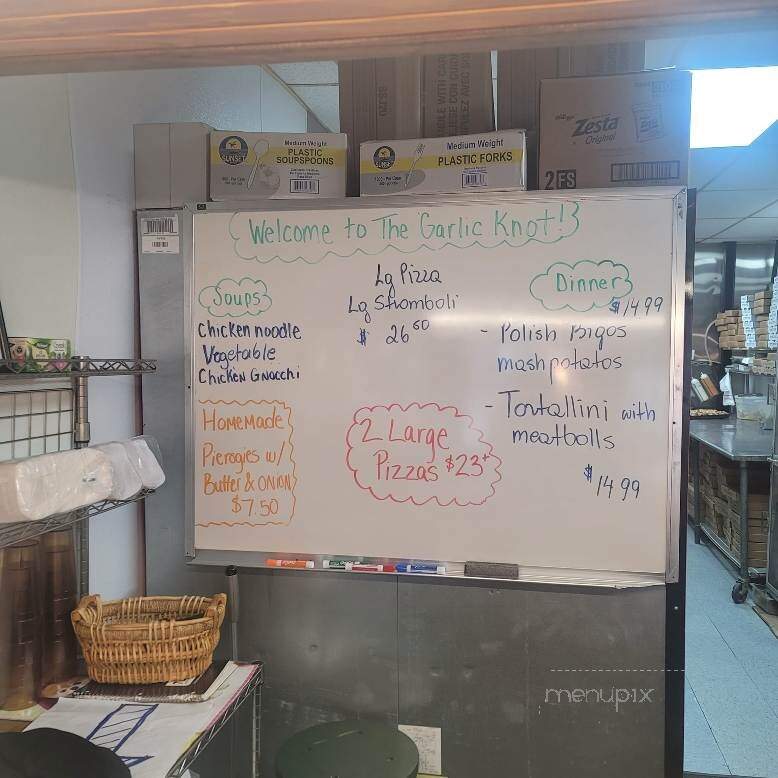 Medium Weight
PLASTIC
SOUPSPOONS
SUNSET
Medium Weight
PLASTIC FORKS
Zesta
Original
2FS
Welcome to The Garlic Knot!
Soups
Chicken noodle
Vegetable
Chicken Gnocchi
HomeMade
Pierogies w/
Butter & ONION
$7.50
Lg Pizza
Lg Stromboli
$ 26⁶⁰
2 Large
Pizzas $23⁺
Dinner
$14.99
- Polish Bigos
mash potatos
- Tortallini with
meatballs
$14.99
menupix